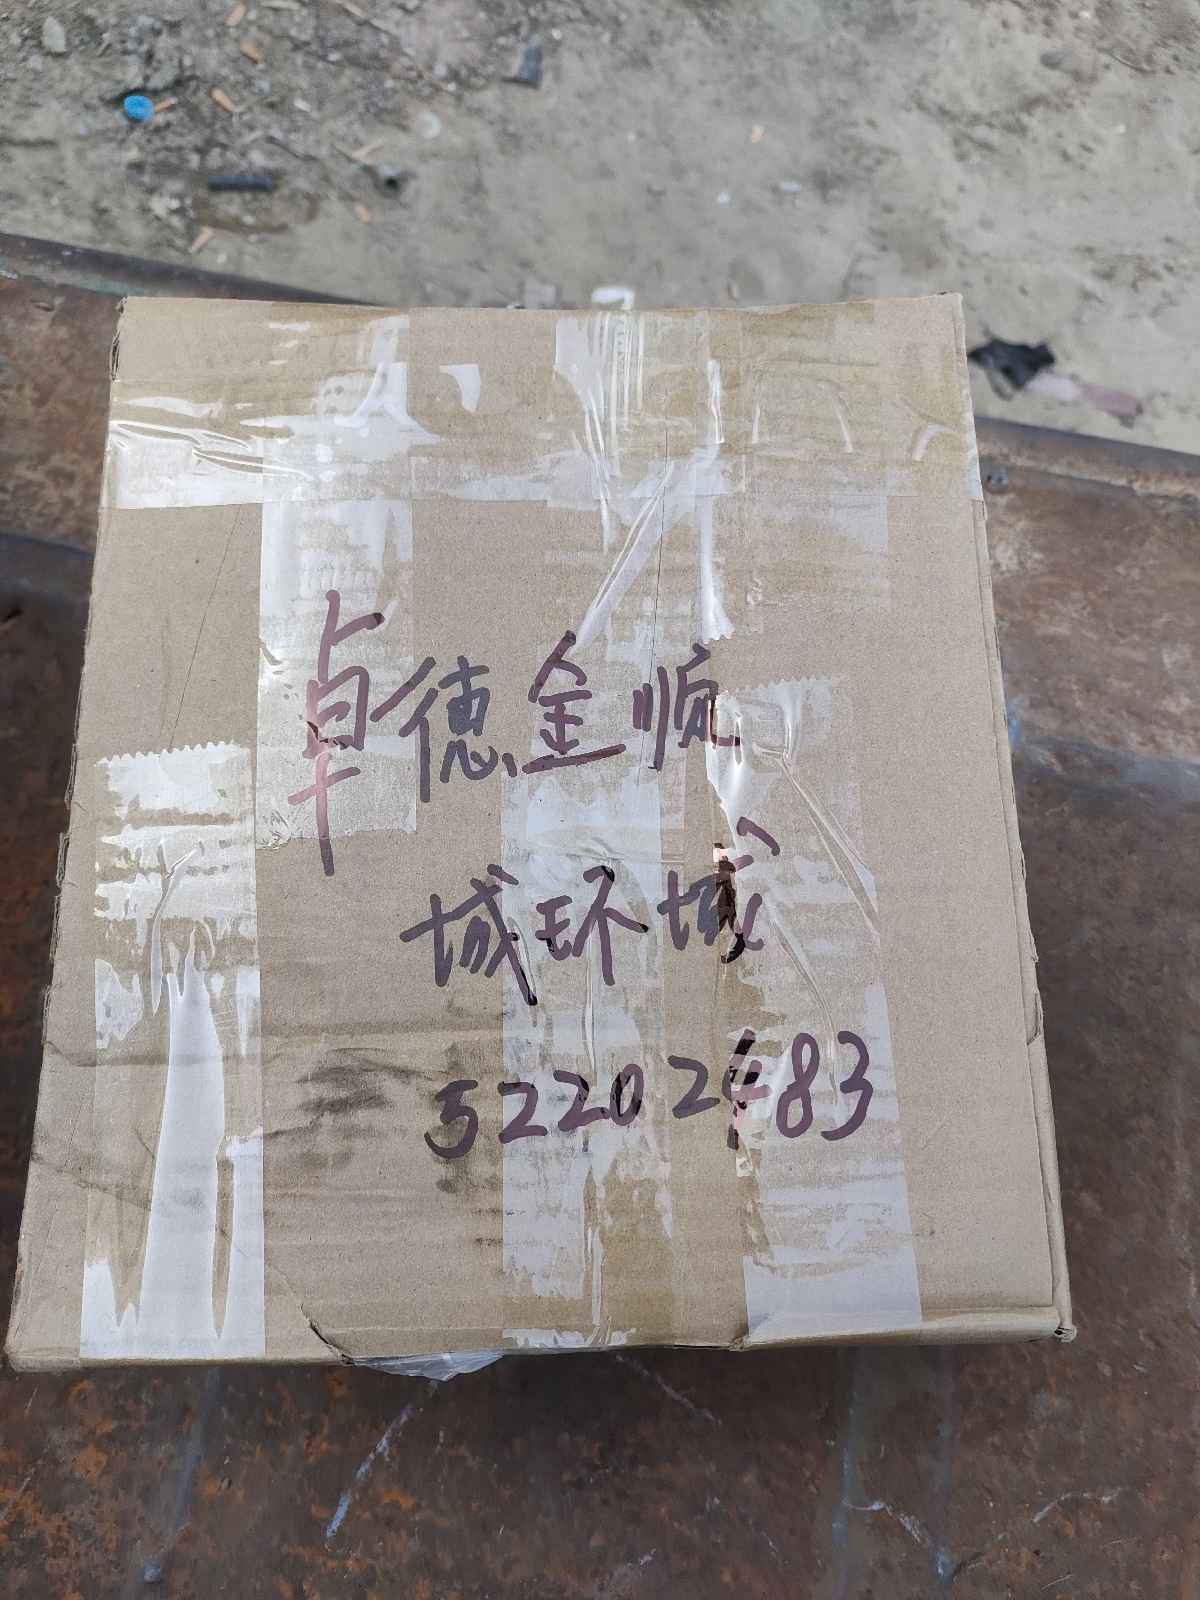 卓德金顺
城环城
52202483